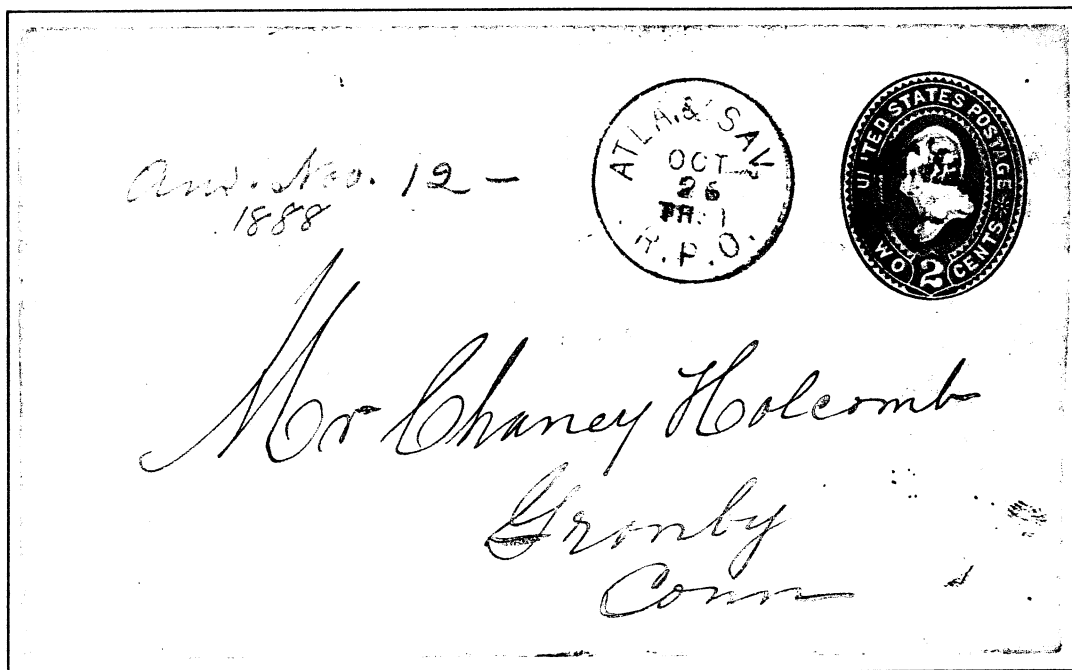 Ans. Nov. 12 –
1888
ATLA. & SAV.
OCT
26
TR. 1
R.P.O.
UNITED STATES POSTAGE
TWO 2 CENTS
Mr Chaney Holcomb
Granby
Conn